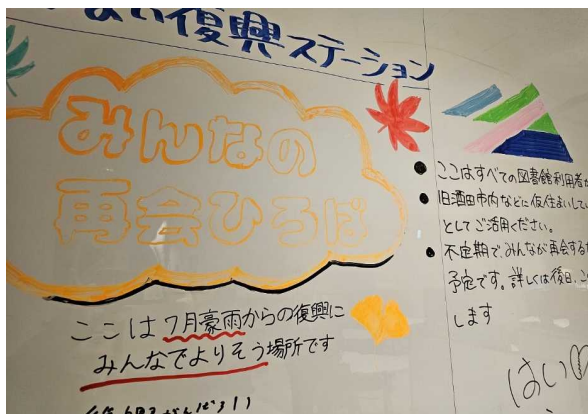 い復興ステーション
みんなの
再会ひろば
ここは7月豪雨からの復興に
みんなでよりそう場所です
ここはすべての図書館利用者が
旧酒田市内などに仮住まいしてい
としてご活用ください。
不定期で、みんなが再会する
予定です。詳しくは後日、こ
します
はい